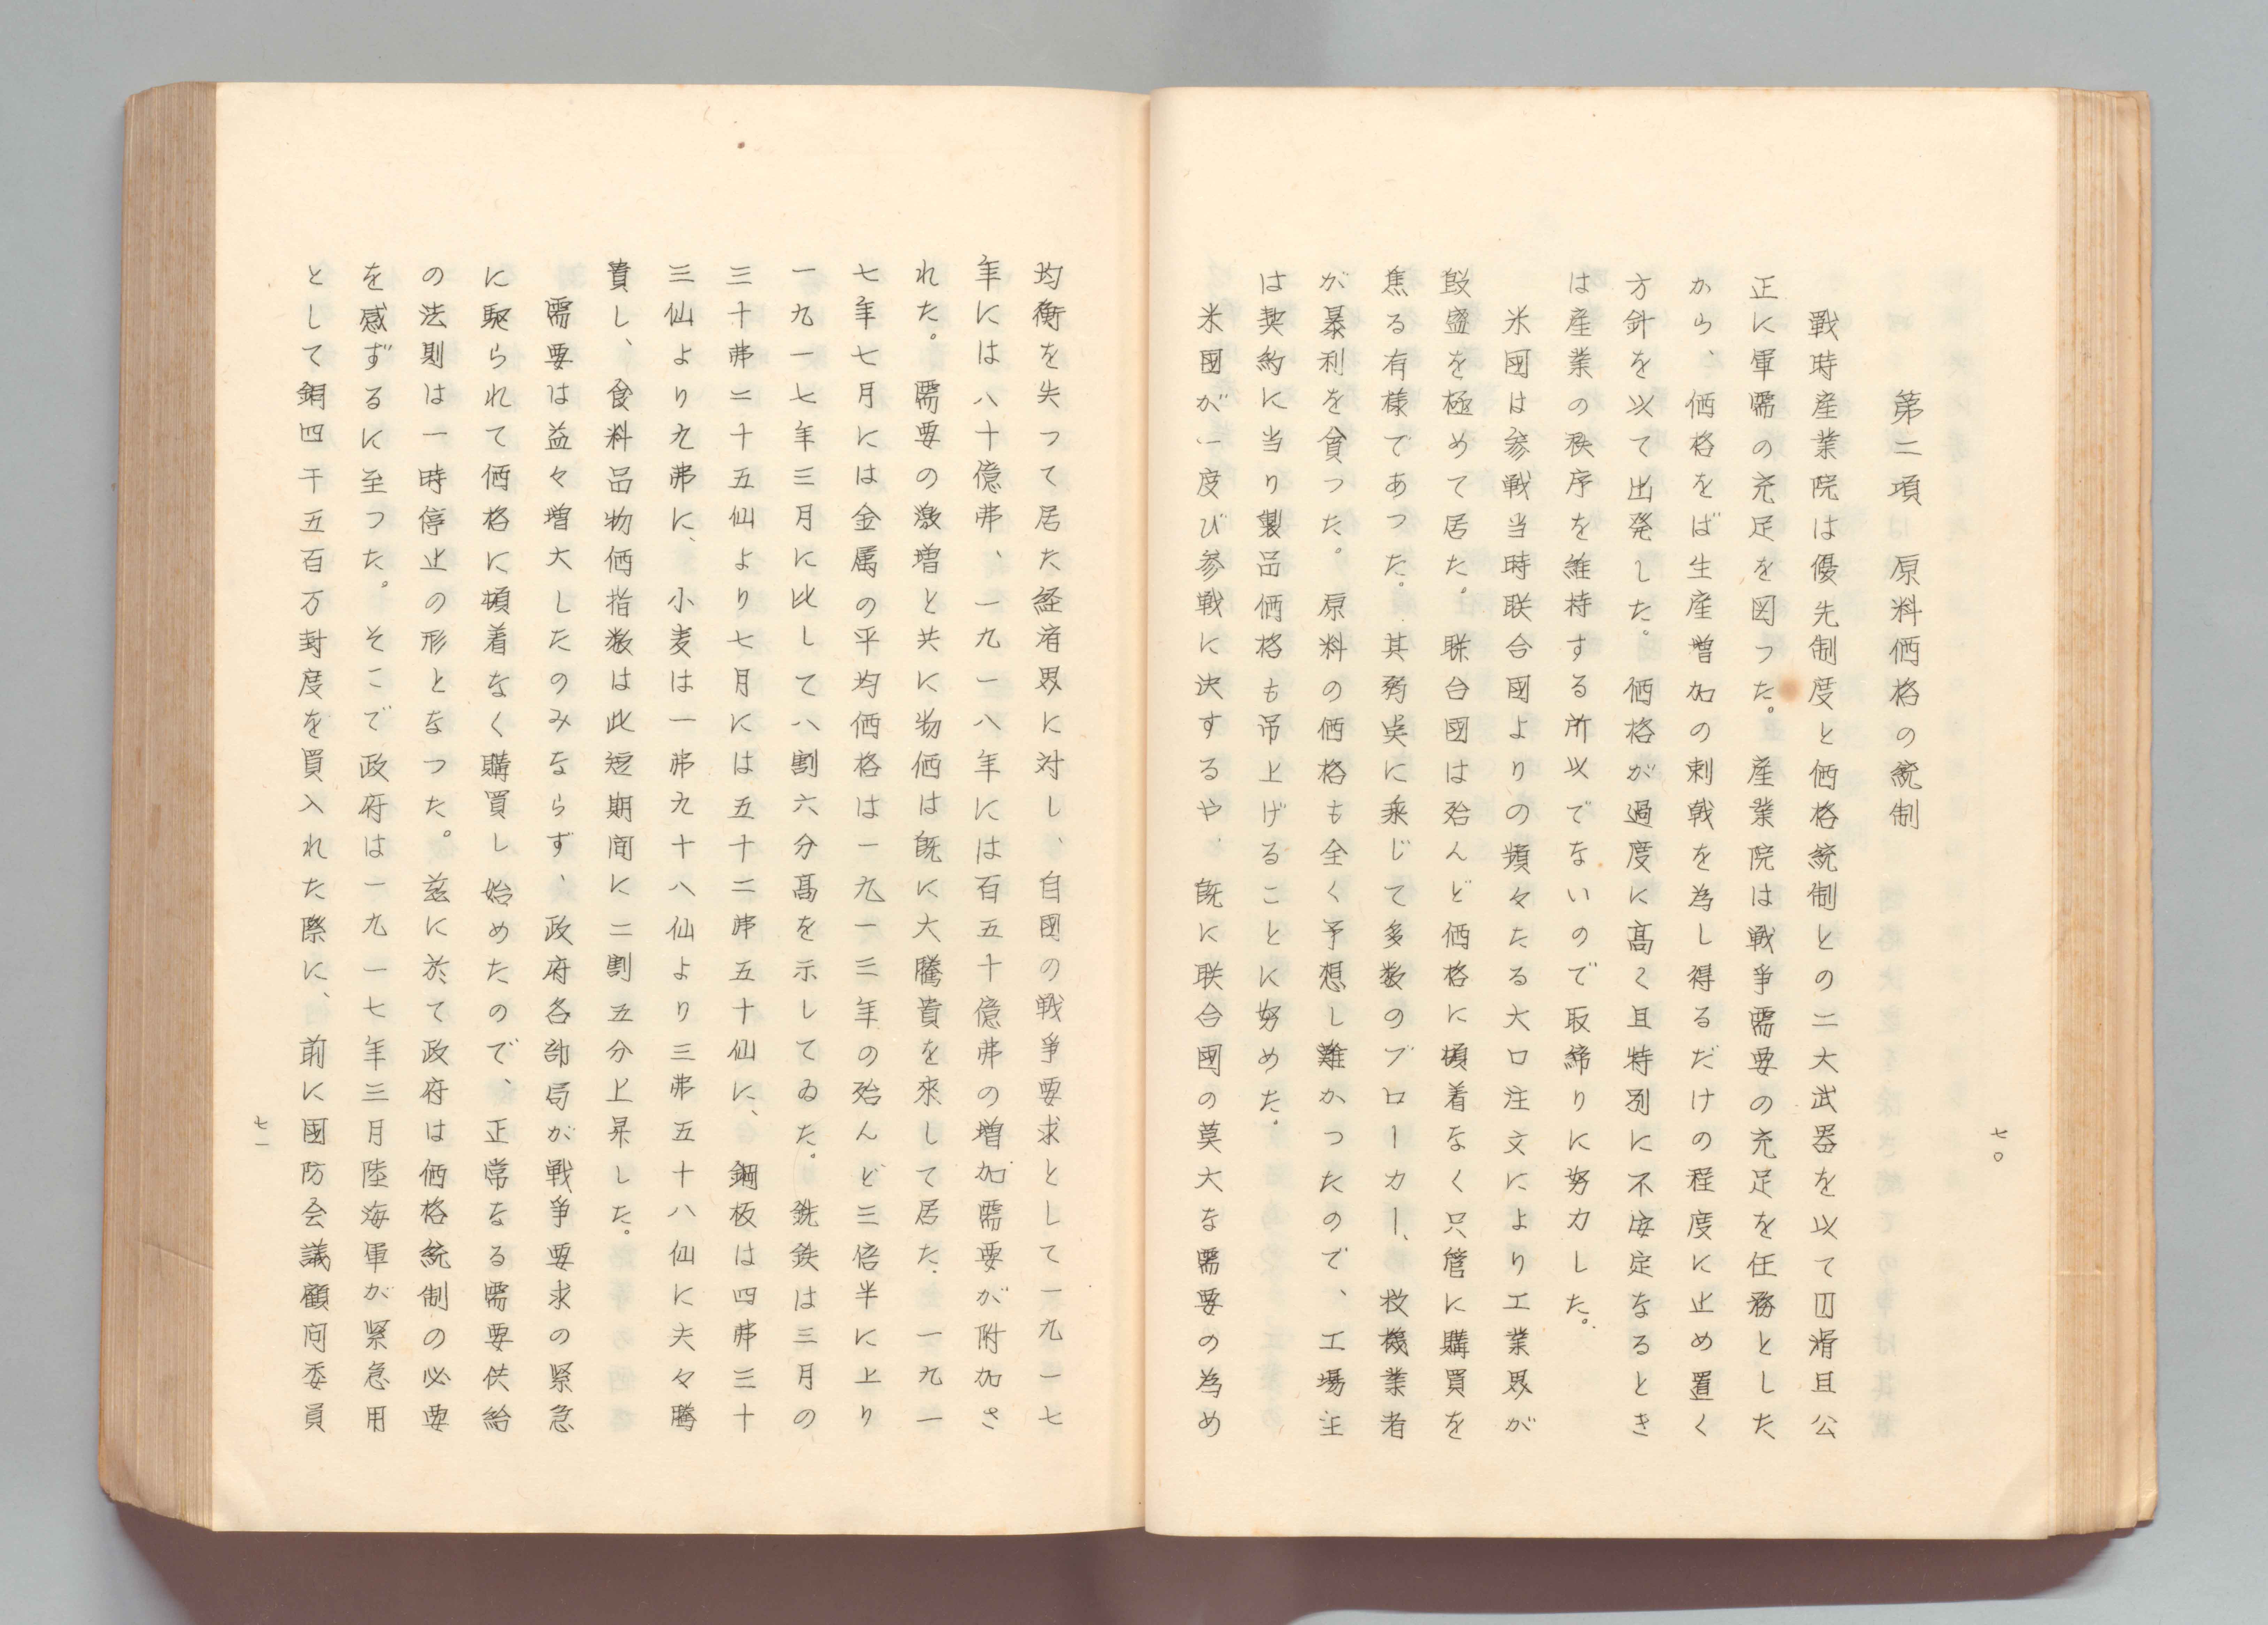 七〇
第二項　原料価格の統制
戰時産業院は優先制度と価格統制との二大武器を以て円滑且公
正に軍需の充足を図つた。産業院は戦争需要の充足を任務とした
から、価格をば生産増加の刺戟を為し得るだけの程度に止め置く
方針を以て出発した。価格が過度に高く且特別に不安定なるとき
は産業の秩序を維持する所以でないので取締りに努力した。
米國は参戦当時联合國よりの頻々たる大口注文により工業界が
殷盛を極めて居た。联合國は殆んど価格に頓着なく只管に購買を
焦る有様であつた。其弱点に乘じて多数のブローカー、投機業者
が暴利を貪つた。原料の価格も全く予想し難かつたので、工場主
は契約に当り製品価格も吊上げることに努めた。
米國が一度び参戦に決するや、既に联合國の莫大な需要の為め
均衡を失つて居た経済界に対し、自國の戦争要求として一九一七
年には八十億弗、一九一八年には百五十億弗の増加需要が附加さ
れた。需要の激増と共に物価は既に大騰貴を來して居た。一九一
七年七月には金属の平均価格は一九一三年の殆んど三倍半に上り
一九一七年三月に比して八割六分高を示してゐた。銑鉄は三月の
三十弗二十五仙より七月には五十二弗五十仙に、鋼板は四弗三十
三仙より九弗に、小麦は一弗九十八仙より三弗五十八仙に夫々騰
貴し、食料品物価指数は此短期間に二割五分上昇した。
需要は益々増大したのみならず、政府各部局が戦争要求の緊急
に駆られて価格に頓着なく購買し始めたので、正常なる需要供給
の法則は一時停止の形となつた。茲に於て政府は価格統制の必要
を感ずるに至つた。そこで政府は一九一七年三月陸海軍が緊急用
として銅四千五百万封度を買入れた際に、前に国防会議顧问委員
七一